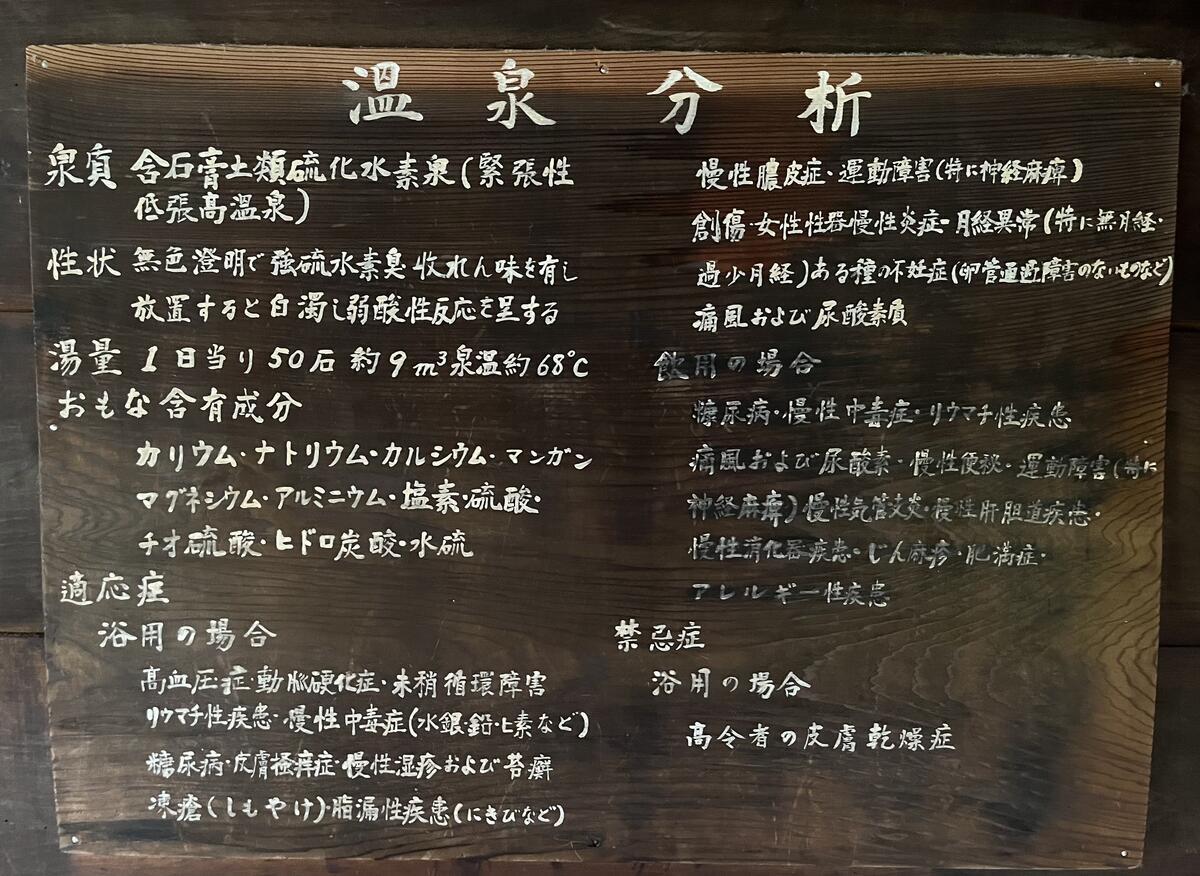 温泉分析
泉質 含石膏土類硫化水素泉(緊張性
低張高温泉)
性状 無色澄明で強硫水素臭収れん味を有し
放置すると白濁し弱酸性反応を呈する
湯量 1日当り50石約9m³泉温約68°C
おもな含有成分
カリウム・ナトリウム・カルシウム・マンガン
マグネシウム・アルミニウム・塩素・硫酸・
チオ硫酸・ヒドロ炭酸・水硫
適応症
浴用の場合
高血圧症動脈硬化症・末梢循環障害
リウマチ性疾患・慢性中毒症(水銀・鉛・ヒ素など)
糖尿病・皮膚掻痒症・慢性湿疹および苔癬
凍瘡(しもやけ)・脂漏性疾患(にきびなど)
慢性膿皮症・運動障害(特に神経麻痺)
創傷・女性性器慢性炎症・月経異常(特に無月経・
過少月経)ある種の不妊症(卵管通過障害のないものなど)
痛風および尿酸素質
飲用の場合
糖尿病・慢性中毒症・リウマチ性疾患
痛風および尿酸素・慢性便秘・運動障害(特に
神経麻痺)慢性気管支炎・慢性肝胆道疾患・
慢性消化器疾患・じん麻疹・肥満症・
アレルギー性疾患
禁忌症
浴用の場合
高令者の皮膚乾燥症